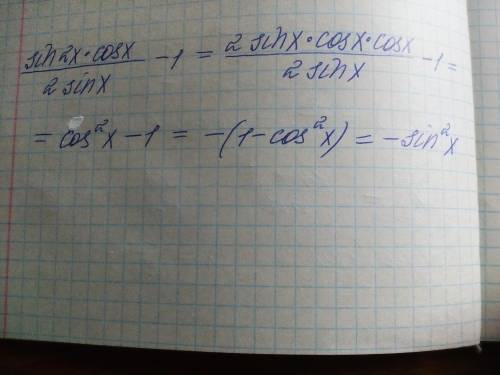 (sin2x·cosx)/(2sinx) -1 = (2sinx·cosx·cosx)/(2sinx) -1=
= cos²x -1 = -(1-cos²x) = -sin²x